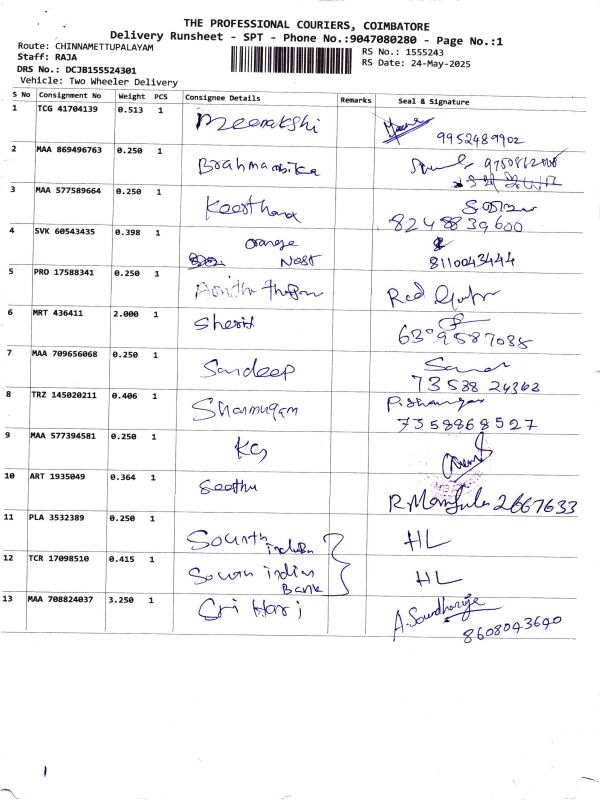 THE PROFESSIONAL COURIERS, COIMBATORE
Delivery Runsheet - SPT - Phone No.:9047080280 - Page No.:1
Route: CHINNAMETTUPALAYAM
RS No.: 1555243
Staff: RAJA
RS Date: 24-May-2025
DRS No.: DCJB155524301
Vehicle: Two Wheeler Delivery
S No Consignment No Weight PCS Consignee Details Remarks Seal & Signature
1 TCG 41704139 0.513 1 Meenakshi
9952489902
2 MAA 869496763 0.250 1 Brahmambika
3 MAA 577589664 0.250 1 Keerthana
8248839600
4 SVK 60543435 0.398 1 orange
Nest 8110043444
5 PRO 17588341 0.250 1
6 MRT 436411 2.000 1 Sherif
7 MAA 709656068 0.250 1 Sandeep
8 TRZ 145020211 0.406 1 Shanmugam
7358868527
9 MAA 577394581 0.250 1 KG
10 ART 1935049 0.364 1 Seethu
2667633
11 PLA 3532389 0.250 1 South indian HL
12 TCR 17098510 0.415 1 South indian HL
Bank
13 MAA 708824037 3.250 1 Sri Hari A. Soundharya
8608043640